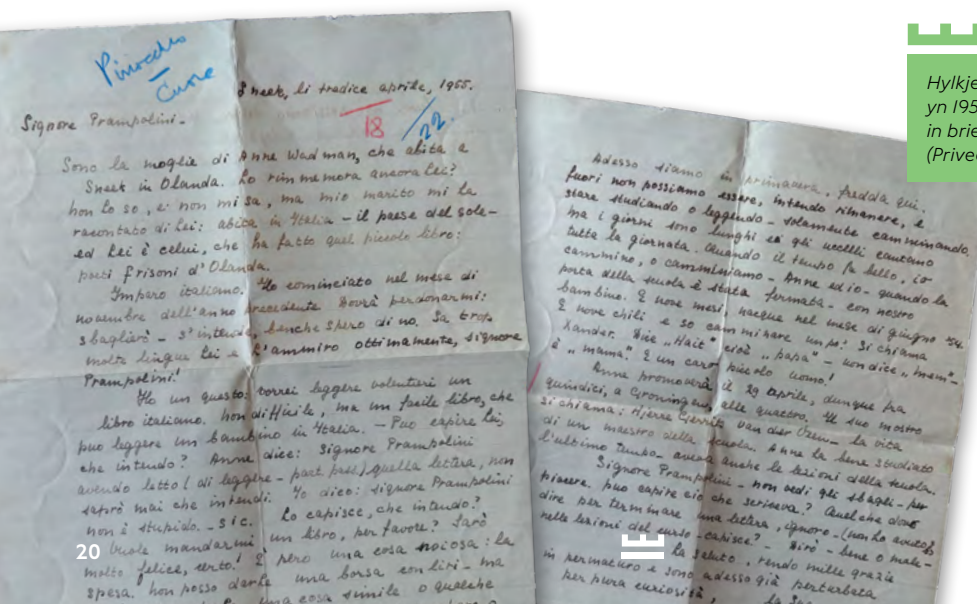 Pinocchio
—
Cuore
Sneek, li tredice aprile, 1955.
18
22.
Signore Prampolini.
Sono la moglie di Anne Wadman, che abita a
Sneek in Olanda. Lo rimmemora ancora Lei?
non lo so, e non mi sa, ma mio marito mi la
racontato di Lei: abita in Italia – il paese del sole –
ed Lei è celui, che ha fatto quel piccolo libro:
poeti frisoni d'Olanda.
Imparo italiano. Ho cominciato nel mese di
novembre dell'anno precedente. Dovrà perdonarmi:
sbaglierò – s'intende, benche spero di no. Sa trop
molte lingue Lei e l'ammiro ottimamente, signore
Prampolini!
Ho un questo: vorrei leggere volentieri un
libro italiano. non difficile, ma un facile libro, che
puo leggere un bambino in Italia. – Puo capire Lei,
che intendo? Anne dice: Signore Prampolini
avendo letto (di leggere – part. pass.) quella lettera, non
saprà mai che intendi. Yo dico: signore Prampolini
non è stupido. – sic. Lo capisce, che intendo?
Vuole mandarmi un libro, per favore? Sarò
molto felice, certo! È però una cosa noiosa: la
spesa. non posso darle una borsa con liri – ma
una cosa simile o qualche
20
Adesso siamo in primavera, fredda qui.
fuori non possiamo essere, intendo rimanere, e
stare studiando o leggendo – solamente camminando.
ma i giorni sono lunghi ed gli uccelli cantano
tutta la giornata. Quando il tempo fa bello, io
cammino, o camminiamo – Anne ed io – quando la
porta della scuola è stata fermata – con nostro
bambino. È nove mesi, nacque nel mese di giugno '54.
È nove chili e so camminare unpo! Si chiama
Xander. Dice „Hait" cioè „papa" – non dice „mem" –
è „mama". È un caro piccolo uomo!
Anne promoverà il 29 aprile, dunque fra
quindici, a Groningen, alle quattro. Il suo mostro
si chiama: Hjerre Gerrits van der Veen – la vita
di un maestro della scuola. Anne la bene studiato
l'ultimo tempo – aveva anche le lezioni della scuola.
Signore Prampolini – non vedi gli sbagli – per
piacere, puo capire ciò che scriveva? Quelche devo
dire per terminare una lettera, ignoro – (non ho avuto
nelle lezioni del curso – capisce? – Dirò – bene o male –
La saluto, rendo mille grazie
in permaturo e sono adesso già perturbata
per pura curiosità,
Hylkje
yn 195
in brie
(Privee